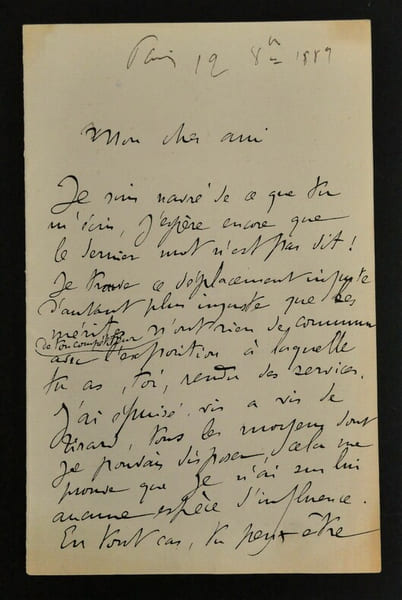 Paris 19 8bre 1889
Mon cher ami
Je suis navré de ce que tu
m'écris, j'espère encore que
le dernier mot n'est pas dit !
Je trouve ce déplacement injuste
d'autant plus injuste que les
mérites
de ton compétiteur n'ont rien de commun
avec l'exposition à laquelle
tu as, toi, rendu des services.
J'ai épuisé vis a vis de
Tirard, tous les moyens dont
je pouvais disposer, cela me
prouve que je n'ai sur lui
aucune espèce d'influence.
En tout cas, tu peux être